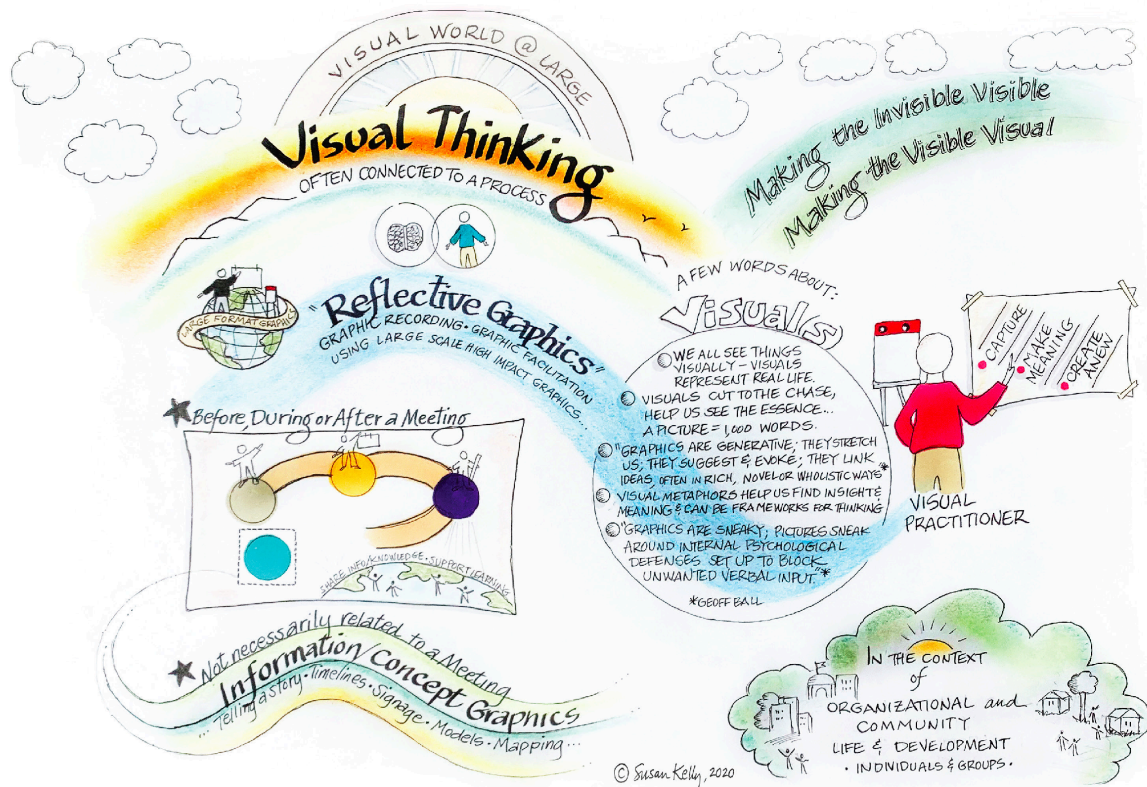 VISUAL WORLD @ LARGE
Visual Thinking
OFTEN CONNECTED TO A PROCESS
Making the Invisible Visible
Making the Visible Visual
LARGE FORMAT GRAPHICS
"Reflective Graphics"
GRAPHIC RECORDING • GRAPHIC FACILITATION
USING LARGE SCALE HIGH IMPACT GRAPHICS...
★ Before, During or After a Meeting
SHARE INFO/KNOWLEDGE • SUPPORT LEARNING
★ Not necessarily related to a Meeting
Information/Concept Graphics
... Telling a story • Timelines • Signage • Models • Mapping ...
A FEW WORDS ABOUT:
Visuals
WE ALL SEE THINGS
VISUALLY – VISUALS
REPRESENT REAL LIFE.
VISUALS CUT TO THE CHASE,
HELP US SEE THE ESSENCE...
A PICTURE = 1,000 WORDS.
"GRAPHICS ARE GENERATIVE; THEY STRETCH
US; THEY SUGGEST & EVOKE; THEY LINK
IDEAS, OFTEN IN RICH, NOVEL OR WHOLISTIC WAYS"*
VISUAL METAPHORS HELP US FIND INSIGHT &
MEANING & CAN BE FRAMEWORKS FOR THINKING
"GRAPHICS ARE SNEAKY; PICTURES SNEAK
AROUND INTERNAL PSYCHOLOGICAL
DEFENSES SET UP TO BLOCK
UNWANTED VERBAL INPUT."*
*GEOFF BALL
• CAPTURE
• MAKE
MEANING
• CREATE
ANEW
VISUAL
PRACTITIONER
IN THE CONTEXT
of
ORGANIZATIONAL and
COMMUNITY
LIFE & DEVELOPMENT
• INDIVIDUALS & GROUPS •
© Susan Kelly, 2020